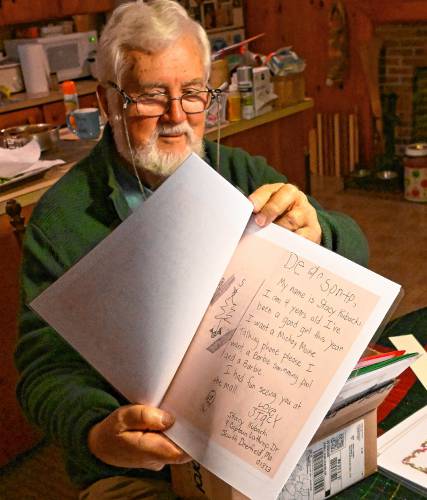 Dear Santa,
My name is Stacy Kubacki
I am 4 years old I've
been a good girl this year
I want a Mickey Mouse
Talking phone please I
want a Barbie swimming pool
and a Barbie
I had fun seeing you at
the mall.
Stacy
Stacy Kubacki
Captain Lathrop Dr
South Deerfield Ma
01373